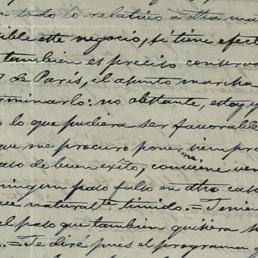 todo lo relativo a otra
este negocio, si tiene efect
tambien es preciso conserva
de Paris, el asunto marcha
terminarlo: no obstante, estoy
lo que pudiera ser favorable
que me procuro poner siempre
de buen exito, conviene
ningun paso falso en otra
natural.te timido. = Tenien
el paso que tambien quisiera
= Te dire pues el programa